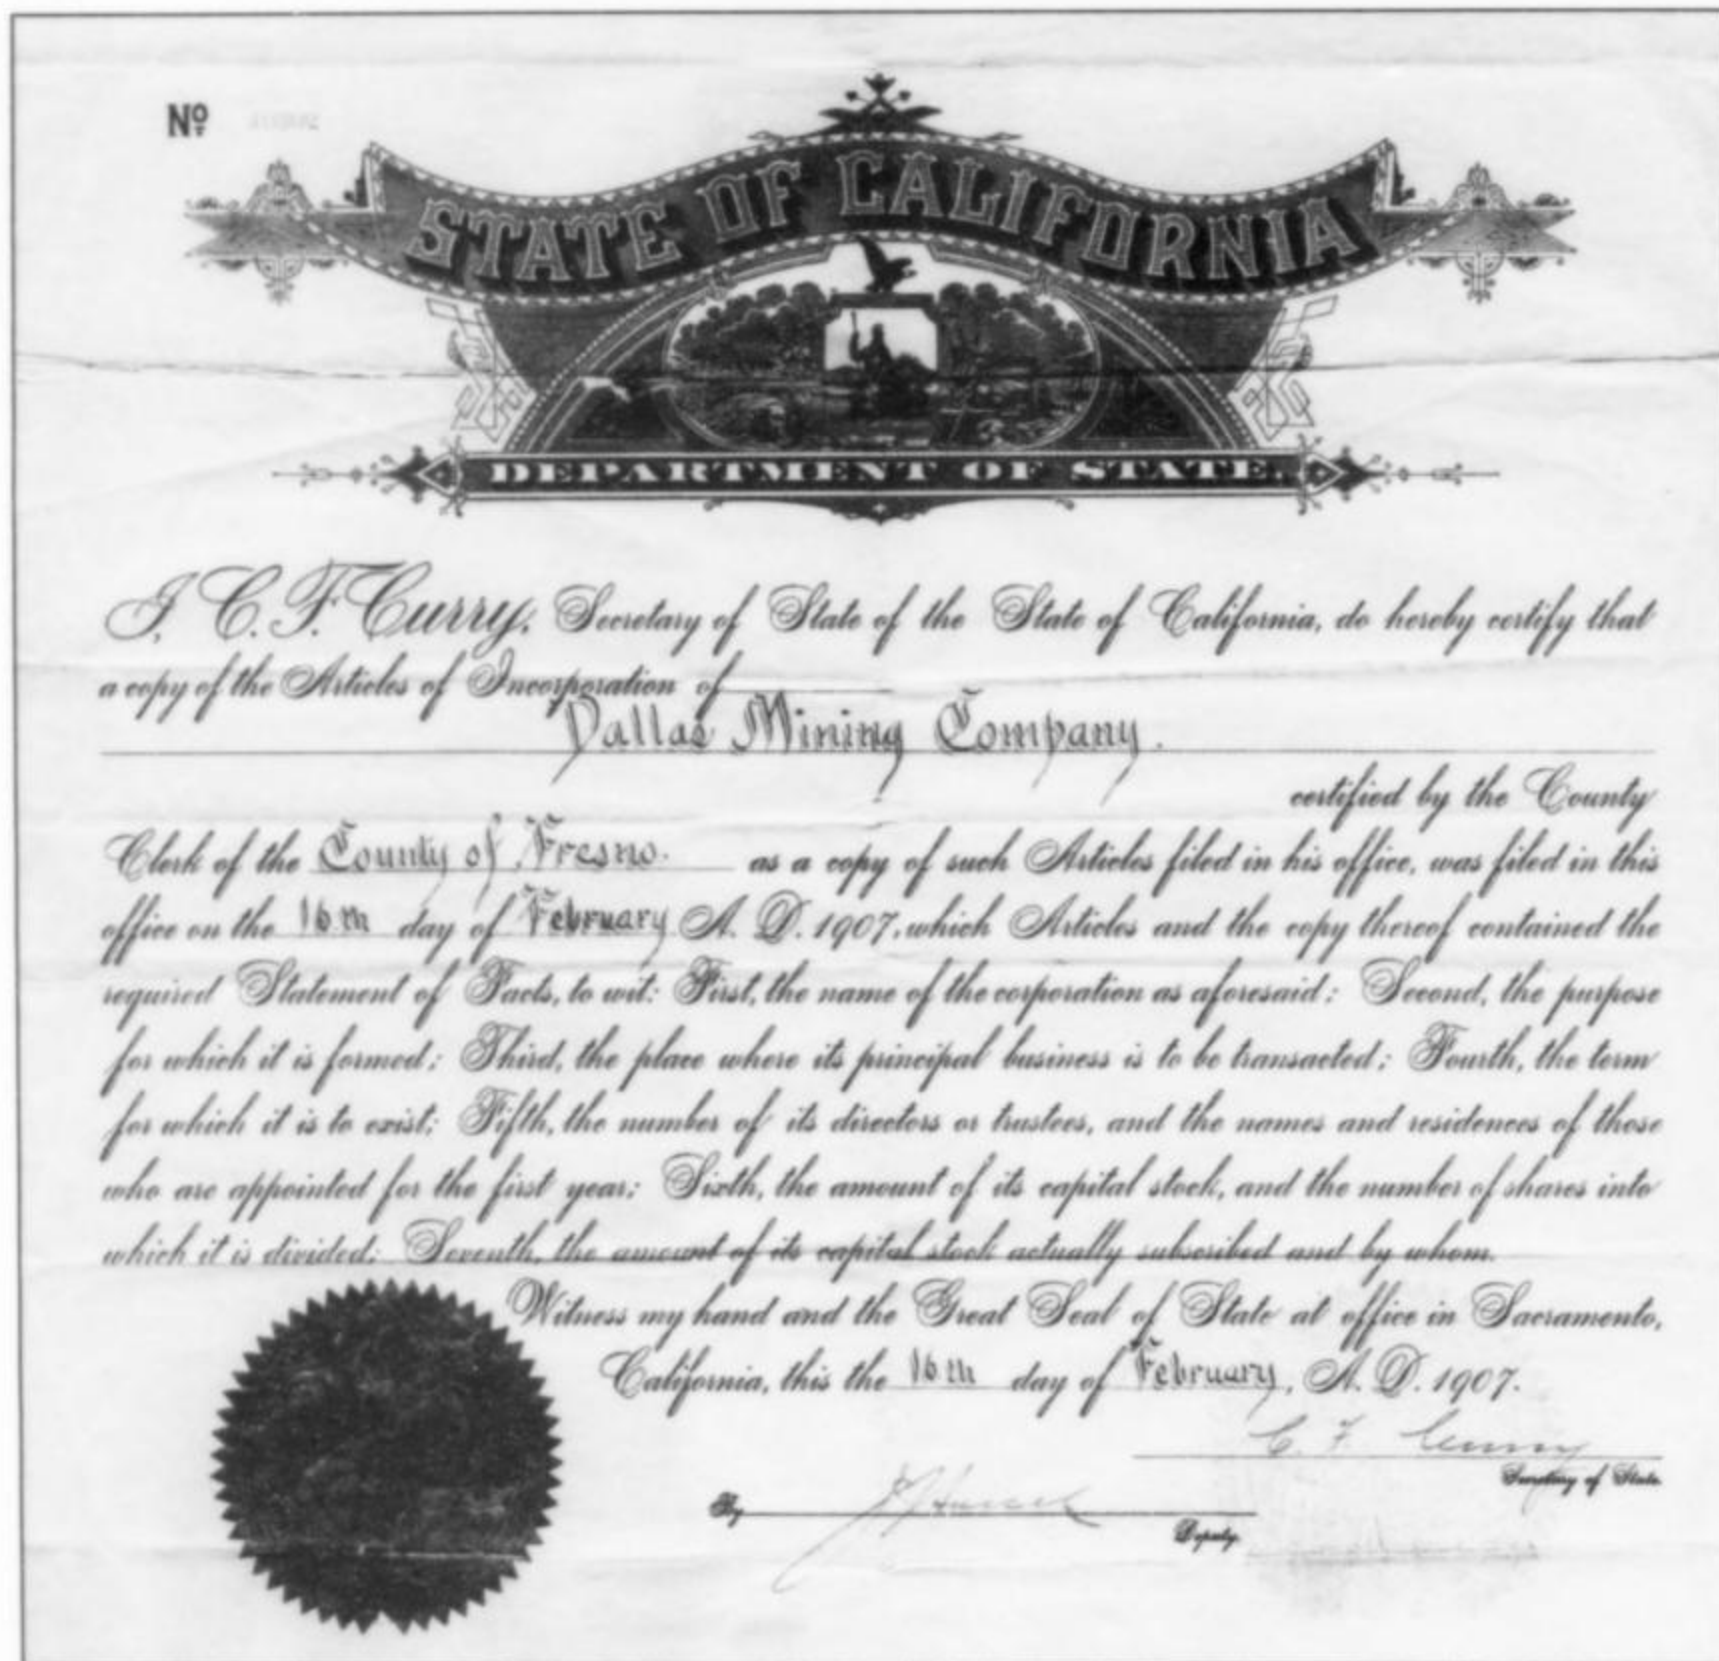 Nº
STATE OF CALIFORNIA
DEPARTMENT OF STATE.
I, C. F. Curry, Secretary of State of the State of California, do hereby certify that
a copy of the Articles of Incorporation of
Dallas Mining Company.
certified by the County
Clerk of the County of Fresno. as a copy of such Articles filed in his office, was filed in this
office on the 16th day of February A. D. 1907, which Articles and the copy thereof contained the
required Statement of Facts, to wit: First, the name of the corporation as aforesaid: Second, the purpose
for which it is formed; Third, the place where its principal business is to be transacted; Fourth, the term
for which it is to exist; Fifth, the number of its directors or trustees, and the names and residences of those
who are appointed for the first year; Sixth, the amount of its capital stock, and the number of shares into
which it is divided; Seventh, the amount of its capital stock actually subscribed and by whom.
Witness my hand and the Great Seal of State at office in Sacramento,
California, this the 16th day of February, A. D. 1907.
C. F. Curry
Secretary of State.
By
Deputy.